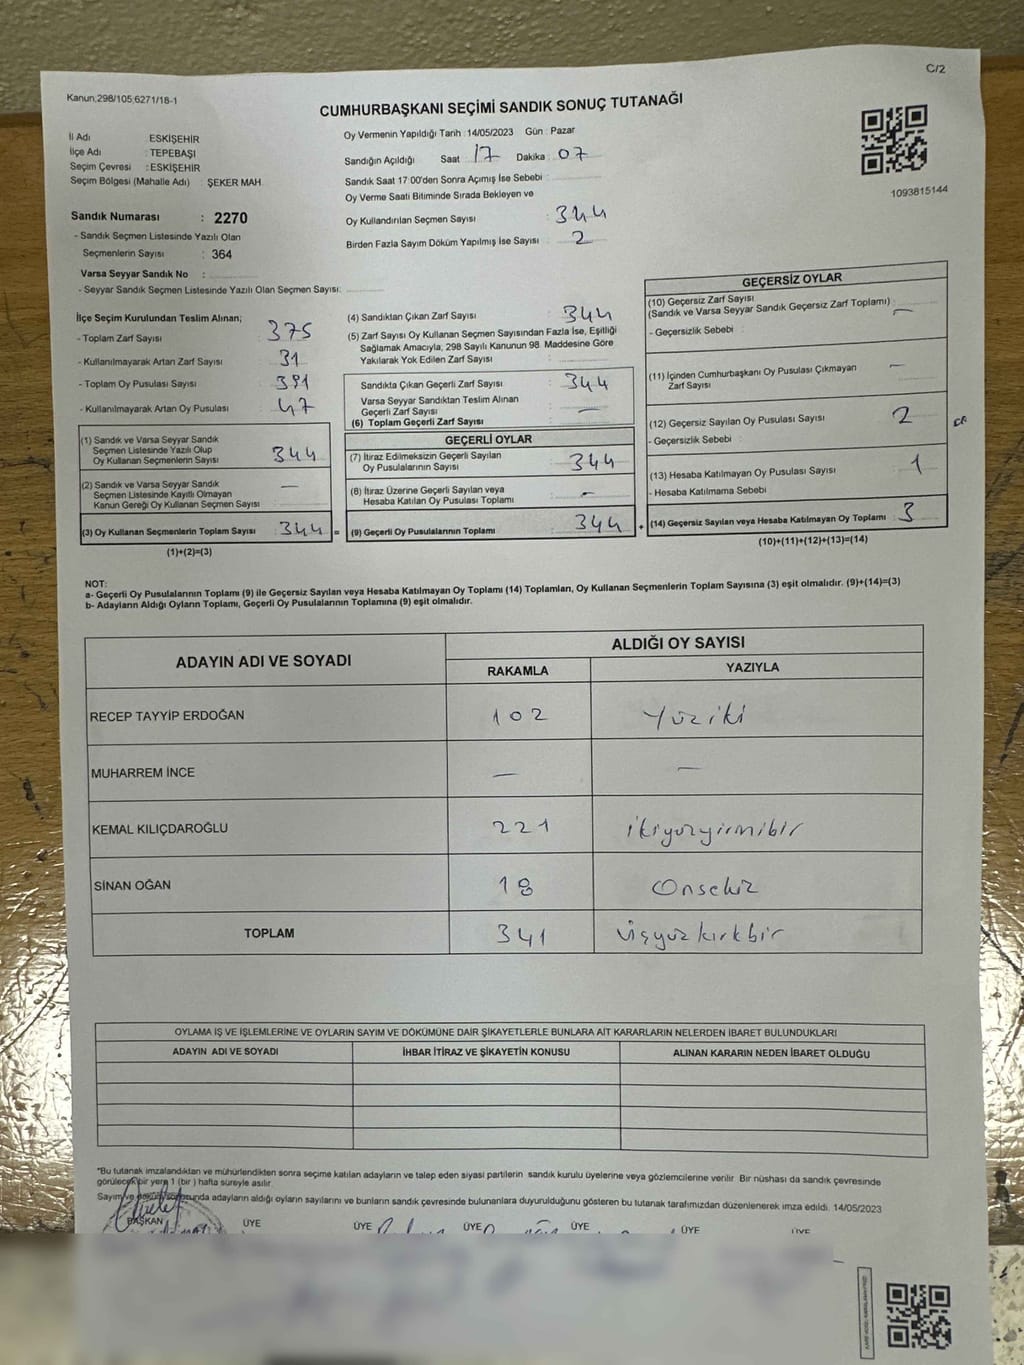 C/2
Kanun,298/105;6271/18-1
CUMHURBAŞKANI SEÇİMİ SANDIK SONUÇ TUTANAĞI
1093815144
İl Adı ESKİŞEHİR
İlçe Adı : TEPEBAŞI
Seçim Çevresi : ESKİŞEHİR
Seçim Bölgesi (Mahalle Adı) : ŞEKER MAH.
Sandık Numarası : 2270
- Sandık Seçmen Listesinde Yazılı Olan
Seçmenlerin Sayısı : 364
Varsa Seyyar Sandık No :
- Seyyar Sandık Seçmen Listesinde Yazılı Olan Seçmen Sayısı:
Oy Vermenin Yapıldığı Tarih : 14/05/2023 Gün : Pazar
Sandığın Açıldığı Saat 17 Dakika : 07
Sandık Saat 17:00'den Sonra Açımış İse Sebebi :
Oy Verme Saati Bitiminde Sırada Bekleyen ve
Oy Kullandırılan Seçmen Sayısı : 344
Birden Fazla Sayım Döküm Yapılmış İse Sayısı : 2
İlçe Seçim Kurulundan Teslim Alınan;
- Toplam Zarf Sayısı : 375
- Kullanılmayarak Artan Zarf Sayısı : 31
- Toplam Oy Pusulası Sayısı : 391
- Kullanılmayarak Artan Oy Pusulası : 47
(1) Sandık ve Varsa Seyyar Sandık
Seçmen Listesinde Yazılı Olup
Oy Kullanan Seçmenlerin Sayısı : 344
(2) Sandık ve Varsa Seyyar Sandık
Seçmen Listesinde Kayıtlı Olmayan
Kanun Gereği Oy Kullanan Seçmen Sayısı : —
(3) Oy Kullanan Seçmenlerin Toplam Sayısı : 344 =
(1)+(2)=(3)
(4) Sandıktan Çıkan Zarf Sayısı : 344
(5) Zarf Sayısı Oy Kullanan Seçmen Sayısından Fazla İse, Eşitliği
Sağlamak Amacıyla, 298 Sayılı Kanunun 98. Maddesine Göre
Yakılarak Yok Edilen Zarf Sayısı :
Sandıkta Çıkan Geçerli Zarf Sayısı : 344
Varsa Seyyar Sandıktan Teslim Alınan
Geçerli Zarf Sayısı : —
(6) Toplam Geçerli Zarf Sayısı :
GEÇERLİ OYLAR
(7) İtiraz Edilmeksizin Geçerli Sayılan
Oy Pusulalarının Sayısı : 344
(8) İtiraz Üzerine Geçerli Sayılan veya
Hesaba Katılan Oy Pusulası Toplamı : —
(9) Geçerli Oy Pusulalarının Toplamı : 344 +
GEÇERSİZ OYLAR
(10) Geçersiz Zarf Sayısı
(Sandık ve Varsa Seyyar Sandık Geçersiz Zarf Toplamı) : —
- Geçersizlik Sebebi :
(11) İçinden Cumhurbaşkanı Oy Pusulası Çıkmayan
Zarf Sayısı : —
(12) Geçersiz Sayılan Oy Pusulası Sayısı : 2
- Geçersizlik Sebebi :
(13) Hesaba Katılmayan Oy Pusulası Sayısı : 1
- Hesaba Katılmama Sebebi :
(14) Geçersiz Sayılan veya Hesaba Katılmayan Oy Toplamı : 3
(10)+(11)+(12)+(13)=(14)
NOT:
a- Geçerli Oy Pusulalarının Toplamı (9) ile Geçersiz Sayılan veya Hesaba Katılmayan Oy Toplamı (14) Toplamları, Oy Kullanan Seçmenlerin Toplam Sayısına (3) eşit olmalıdır. (9)+(14)=(3)
b- Adayların Aldığı Oyların Toplamı, Geçerli Oy Pusulalarının Toplamına (9) eşit olmalıdır.
ADAYIN ADI VE SOYADI ALDIĞI OY SAYISI
RAKAMLA YAZIYLA
RECEP TAYYİP ERDOĞAN 102 Yüziki
MUHARREM İNCE — —
KEMAL KILIÇDAROĞLU 221 ikiyüzyirmibir
SİNAN OĞAN 18 Onsekiz
TOPLAM 341 üçyüzkırkbir
OYLAMA İŞ VE İŞLEMLERİNE VE OYLARIN SAYIM VE DÖKÜMÜNE DAİR ŞİKAYETLERLE BUNLARA AİT KARARLARIN NELERDEN İBARET BULUNDUKLARI
ADAYIN ADI VE SOYADI İHBAR İTİRAZ VE ŞİKAYETİN KONUSU ALINAN KARARIN NEDEN İBARET OLDUĞU
*Bu tutanak imzalandıktan ve mühürlendikten sonra seçime katılan adayların ve talep eden siyasi partilerin sandık kurulu üyelerine veya gözlemcilerine verilir. Bir nüshası da sandık çevresinde
görülecek bir yere 1 (bir ) hafta süreyle asılır.
Sayım ve döküm sonucunda adayların aldığı oyların sayılarını ve bunların sandık çevresinde bulunanlara duyurulduğunu gösteren bu tutanak tarafımızdan düzenlenerek imza edildi. 14/05/2023
BAŞKAN ÜYE ÜYE ÜYE ÜYE ÜYE ÜYE